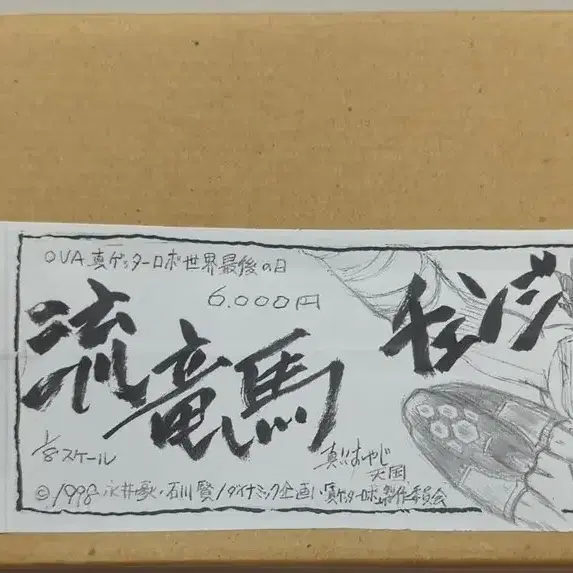 OVA 真ゲッターロボ世界最後の日
6.000円
流竜馬
チェンジ
1/8スケール
真!!おやじ
天国
©1998 永井豪・石川賢/ダイナミック企画・真ゲッターロボ製作委員会